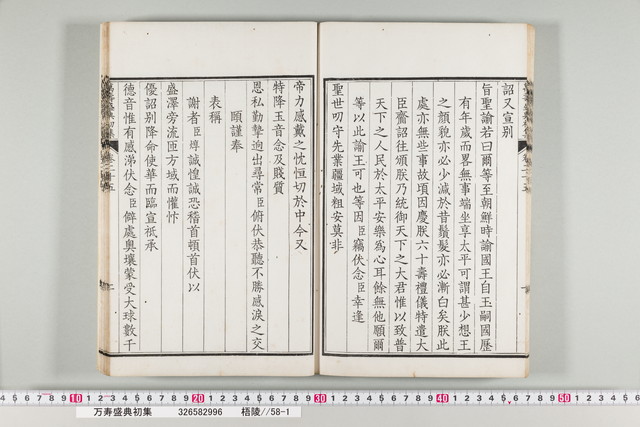 詔又宣別
旨聖諭若曰爾等至朝鮮時諭國王自王嗣國歷
有年歲而畧無事端坐享太平可謂甚少想王
之顏貌亦必少減於昔鬚髮亦必漸白矣朕此
處亦無些事故頃因慶朕六十壽禮儀特遣大
臣齎詔往頒朕乃統御天下之大君惟以致普
天下之人民於太平安樂為心耳餘無他願爾
等以此諭王可也等因臣竊伏念臣幸逢
聖世叨守先業疆域粗安莫非
帝力感戴之忱恒切於中今又
特降玉音念及賤質
恩私勤摯逈出尋常臣俯伏恭聽不勝感淚之交
頤謹奉
表稱
謝者臣焞誠惶誠恐稽首頓首伏以
盛澤旁流匝方域而懽忭
優詔別降命使華而臨宣祗承
德音惟有感涕伏念臣僻處奧壤蒙受大球數千
万寿盛典初集 326582996 梧陵//58-1
10 20 30 40 50